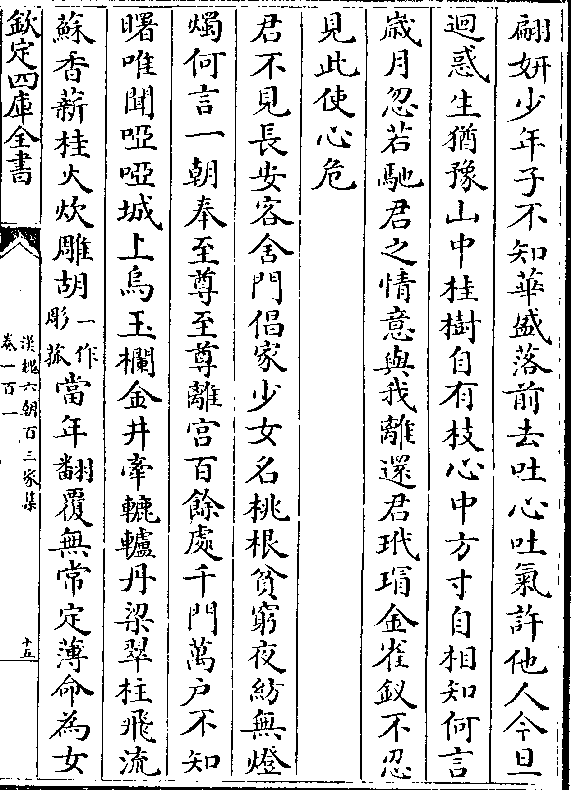 翩妍少年子不知華盛落前去吐心吐氣許他人今旦
迴惑生猶豫山中桂樹自有枝心中方寸自相知何言
歲月忽若馳君之情意與我離還君玳瑁金雀釵不忍
見此使心危
君不見長安客舍門倡家少女名桃根貧窮夜紡無燈
燭何言一朝奉至尊至尊離宮百餘處千門萬戶不知
曙唯聞啞啞城上烏玉欄金井牽轆轤丹梁翠柱飛流
蘇香薪桂火炊雕胡一作彫菰當年翻覆無常定薄命為女
欽定四庫全書
漢魏六朝百三家集
卷一百一
十五